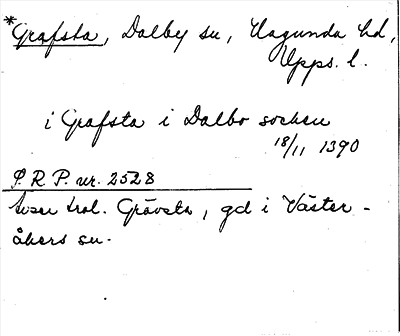 *Grafsta, Dalby sn, Hagunda hd,
Upps. l.
i Grafsta i Dalbo socken
18/11 1390
P. R P. nr. 2528
trol. Grävsta, gd i Väster-
åkers sn.